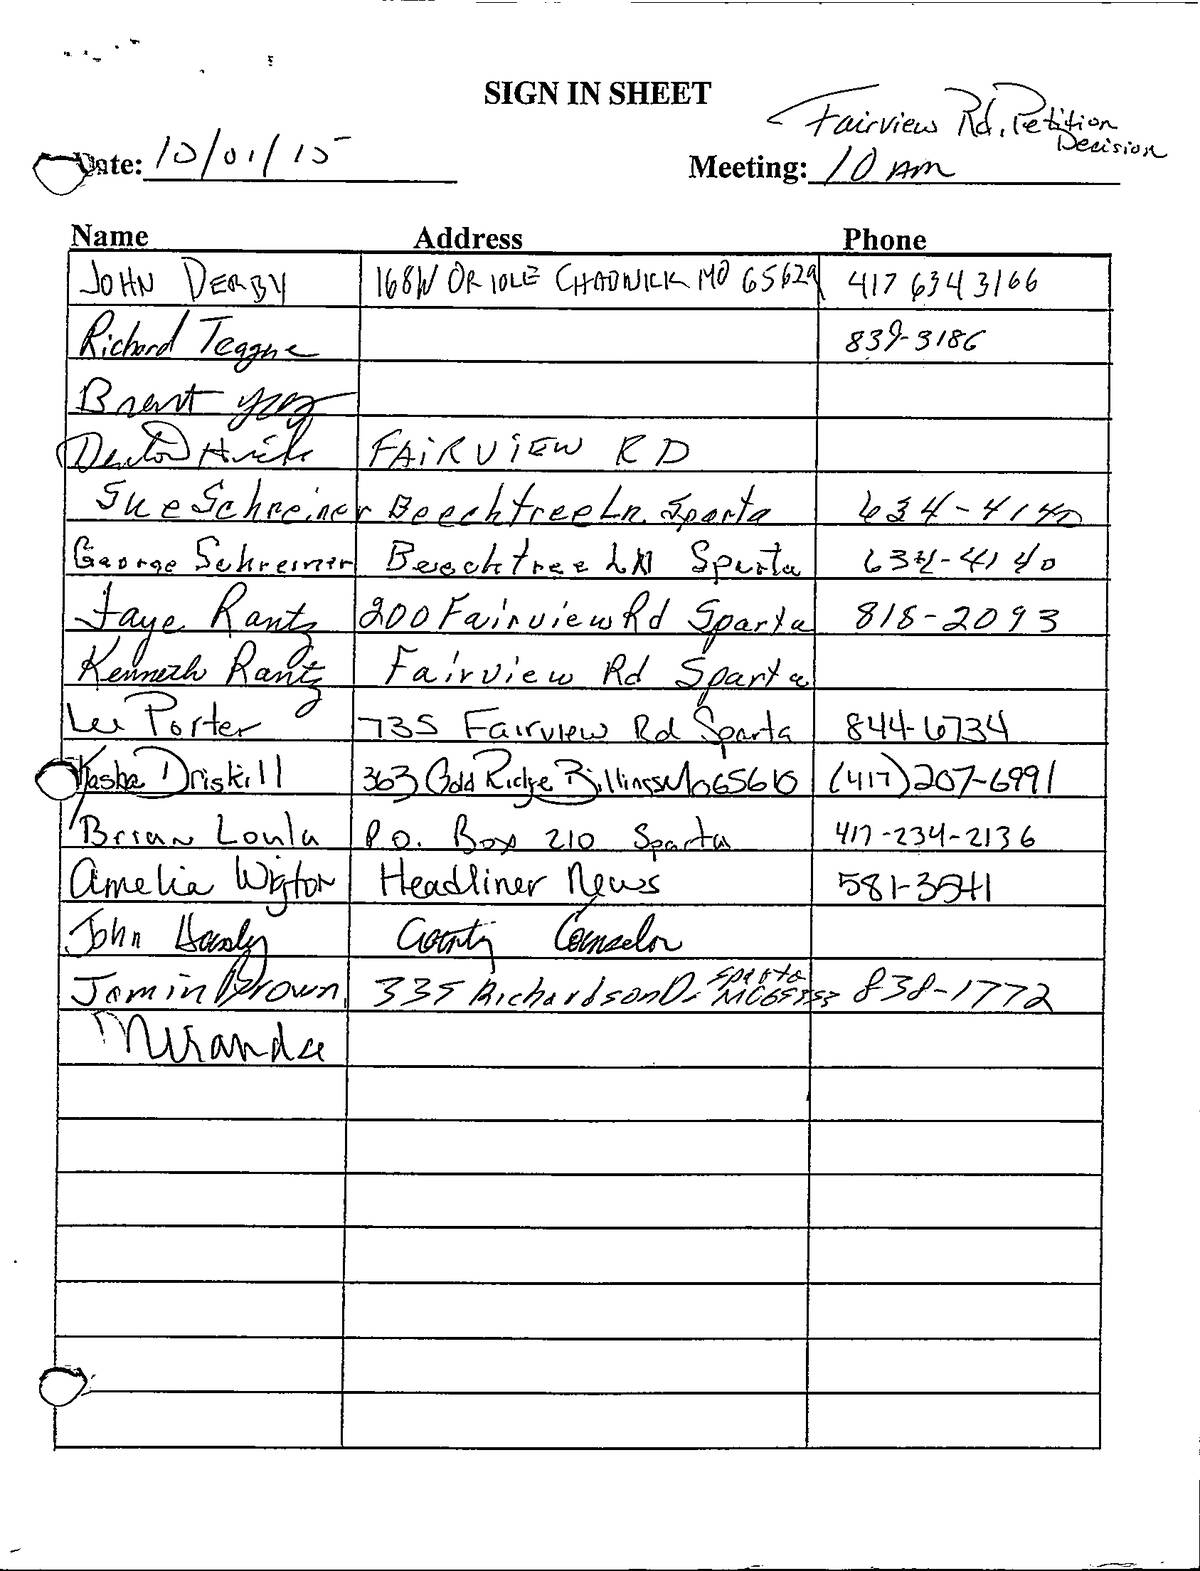 SIGN IN SHEET
Fairview Rd. Petition
Decision
Date: 10/01/15 Meeting: 10 AM
Name Address Phone
JOHN DERBY 168W ORIOLE CHADWICK MO 65629 417 634 3166
Richard Teague 839-3186
Brent
FAIRVIEW RD
Sue Schreiner Beechtree Ln. Sparta 634-4140
George Schreiner Beechtree LN Sparta 634-4140
Faye Rantz 200 Fairview Rd Sparta 818-2093
Kenneth Rantz Fairview Rd Sparta
Lee Porter 735 Fairview Rd Sparta 844-6734
Kasha Driskill 363 Gold Ridge Billings Mo 65610 (417) 207-6991
Brian Loula P.O. Box 210 Sparta 417-234-2136
Amelia Wigton Headliner News 581-3541
John County Counselor
Jamin Brown 335 Richardson Dr Sparta MO 65753 838-1772
Miranda